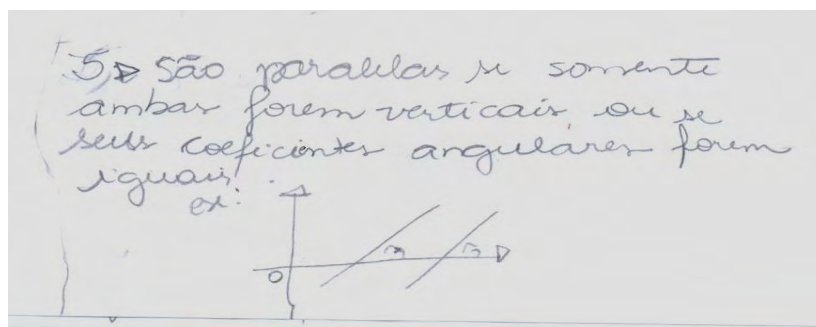 5) São paralelas se somente
ambas forem verticais ou se
seus coeficientes angulares forem
iguais.
ex:
0